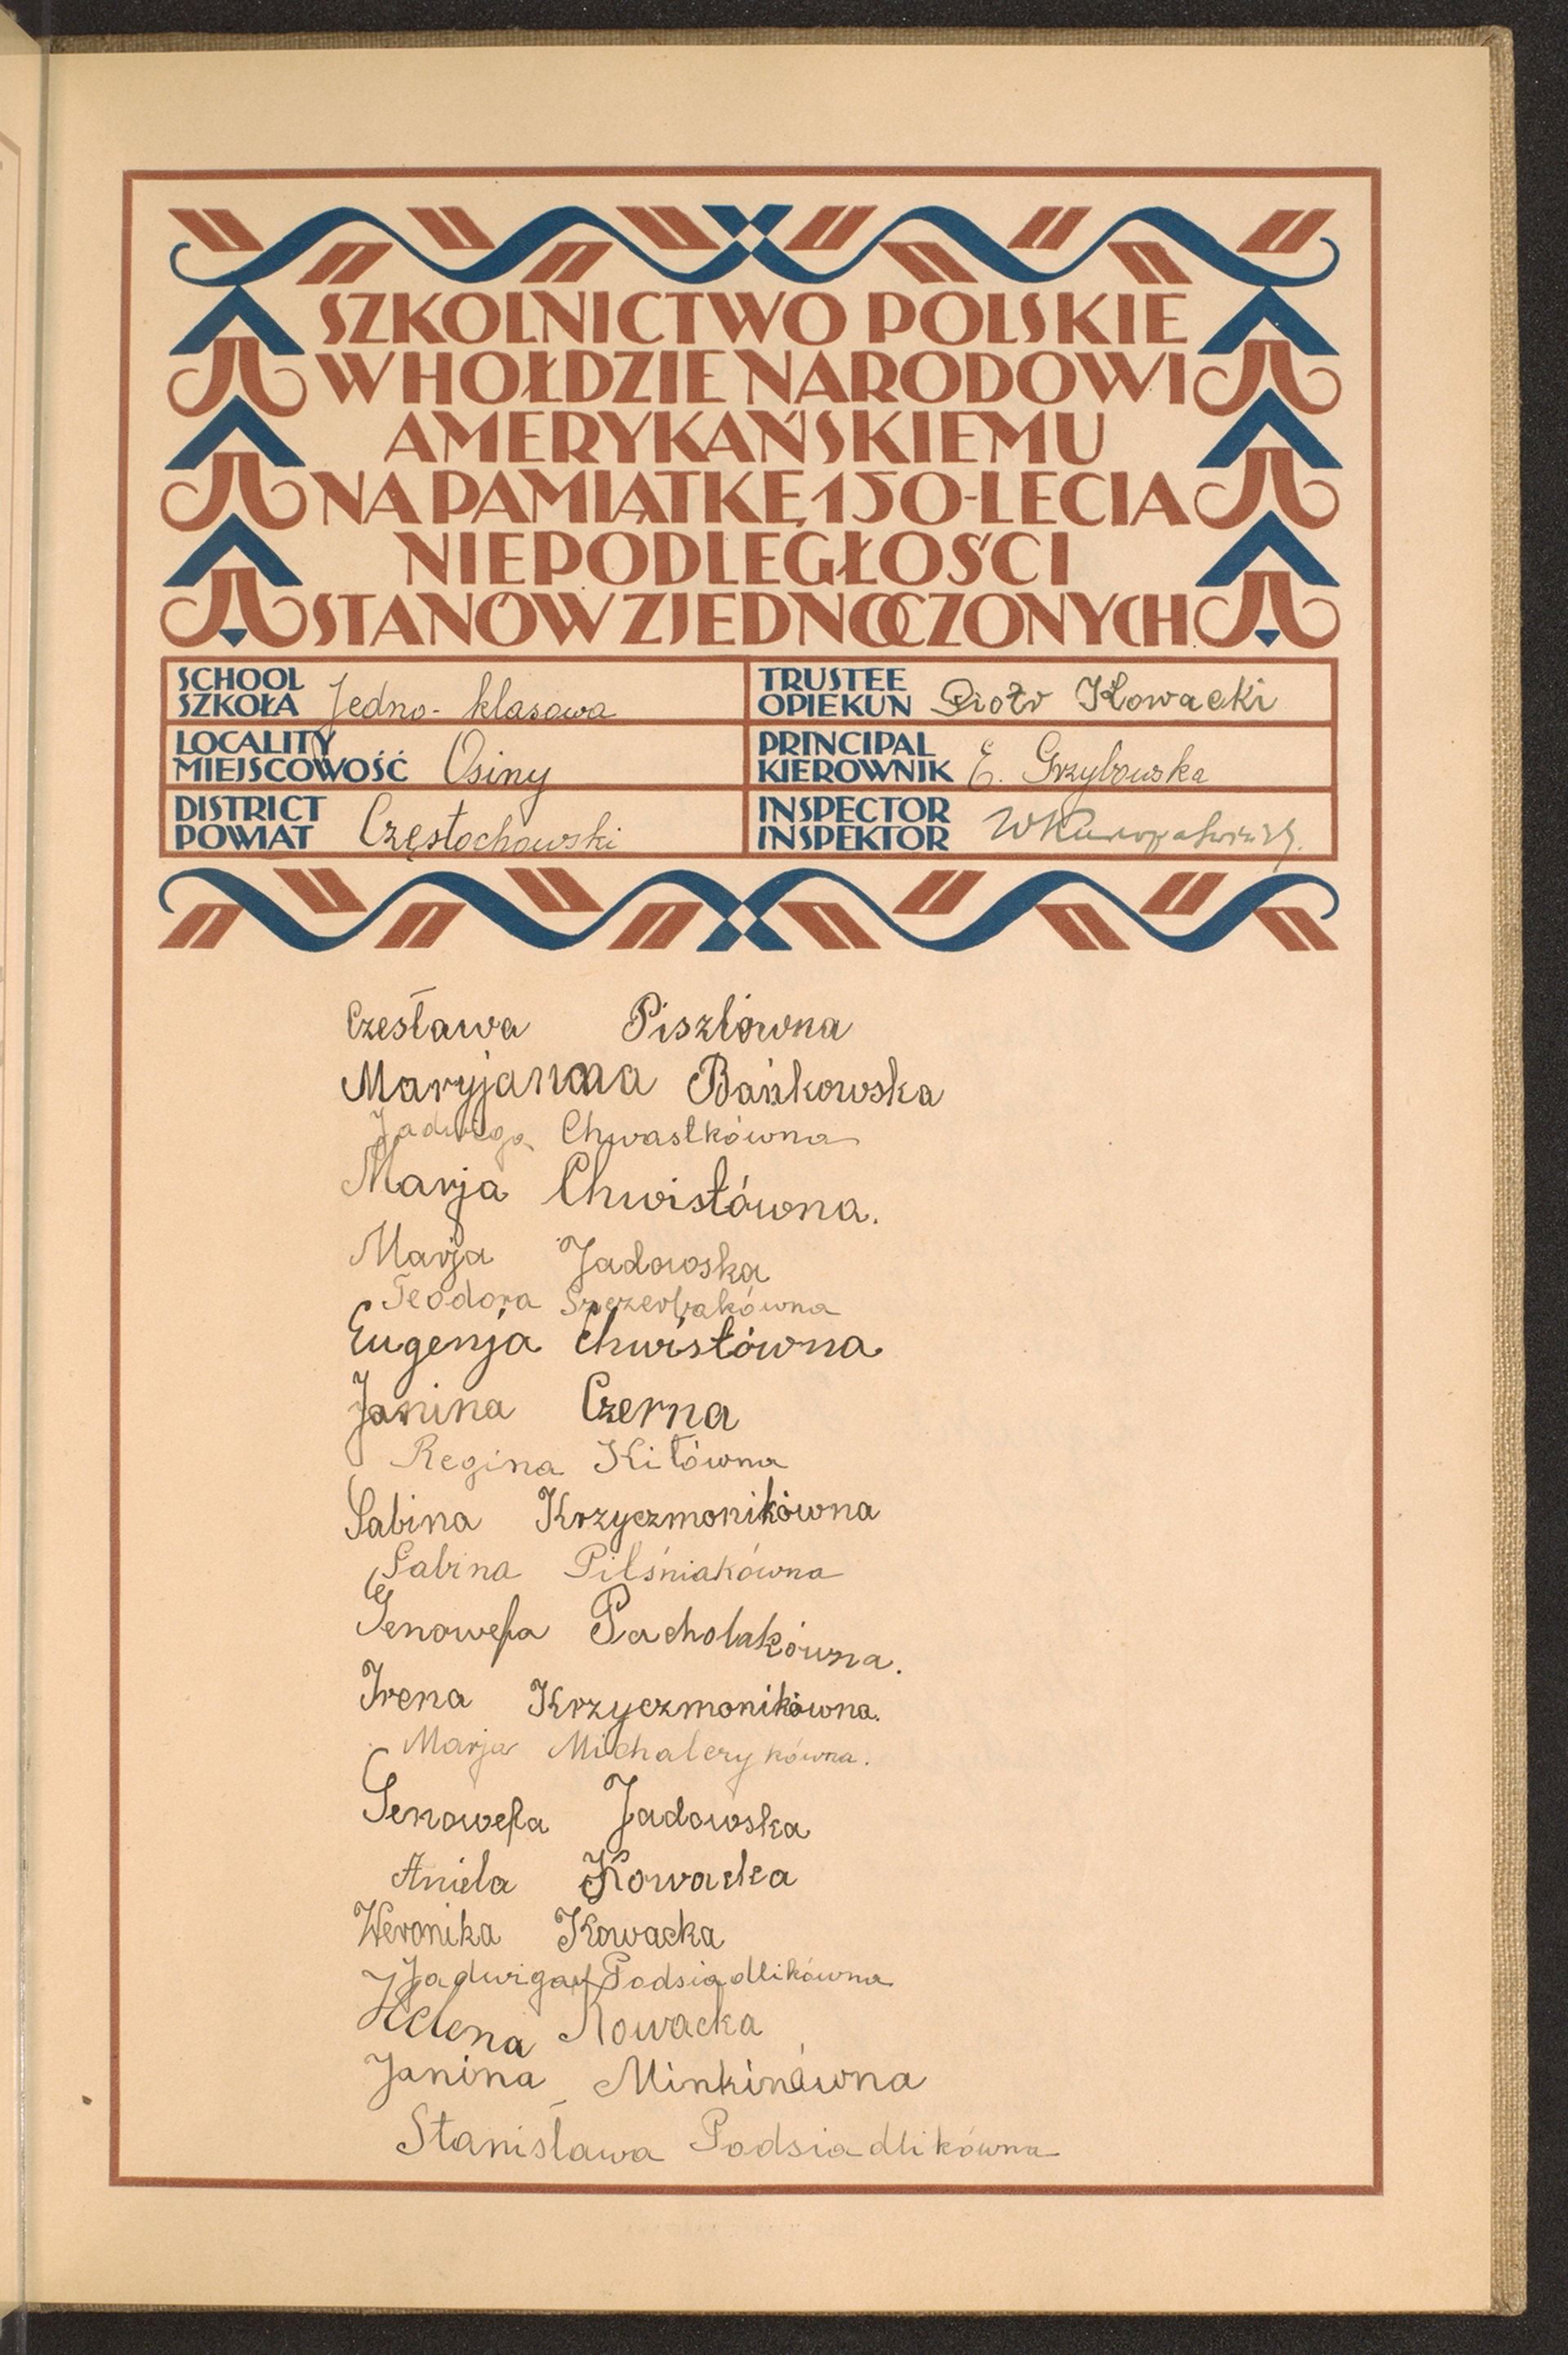 SZKOLNICTWO POLSKIE
W HOŁDZIE NARODOWI
AMERYKAŃSKIEMU
NA PAMIĄTKĘ 150-LECIA
NIEPODLEGŁOŚCI
STANÓW ZJEDNOCZONYCH
SCHOOL
SZKOŁA Jedno-klasowa
TRUSTEE
OPIEKUN Piotr Kowacki
LOCALITY
MIEJSCOWOŚĆ Osiny
PRINCIPAL
KIEROWNIK E. Grzybowska
DISTRICT
POWIAT Częstochowski
INSPECTOR
INSPEKTOR
Czesława Piszlówna
Maryjanna Bańkowska
Jadwiga Chwastkówna
Marja Chwistówna.
Marja Jadowska
Teodora Szczerbakówna
Eugenja Chwistówna
Janina Czerna
Regina Kitówna
Sabina Krzyczmonikówna
Sabina Pilśniakówna
Genowefa Pacholakówna.
Irena Krzyczmonikówna.
Marja Michalczykówna.
Genowefa Jadowska
Aniela Kowacka
Weronika Kowacka
Jadwiga Podsiadlikówna
Helena Nowacka
Janina Minkinówna
Stanisława Podsiadlikówna